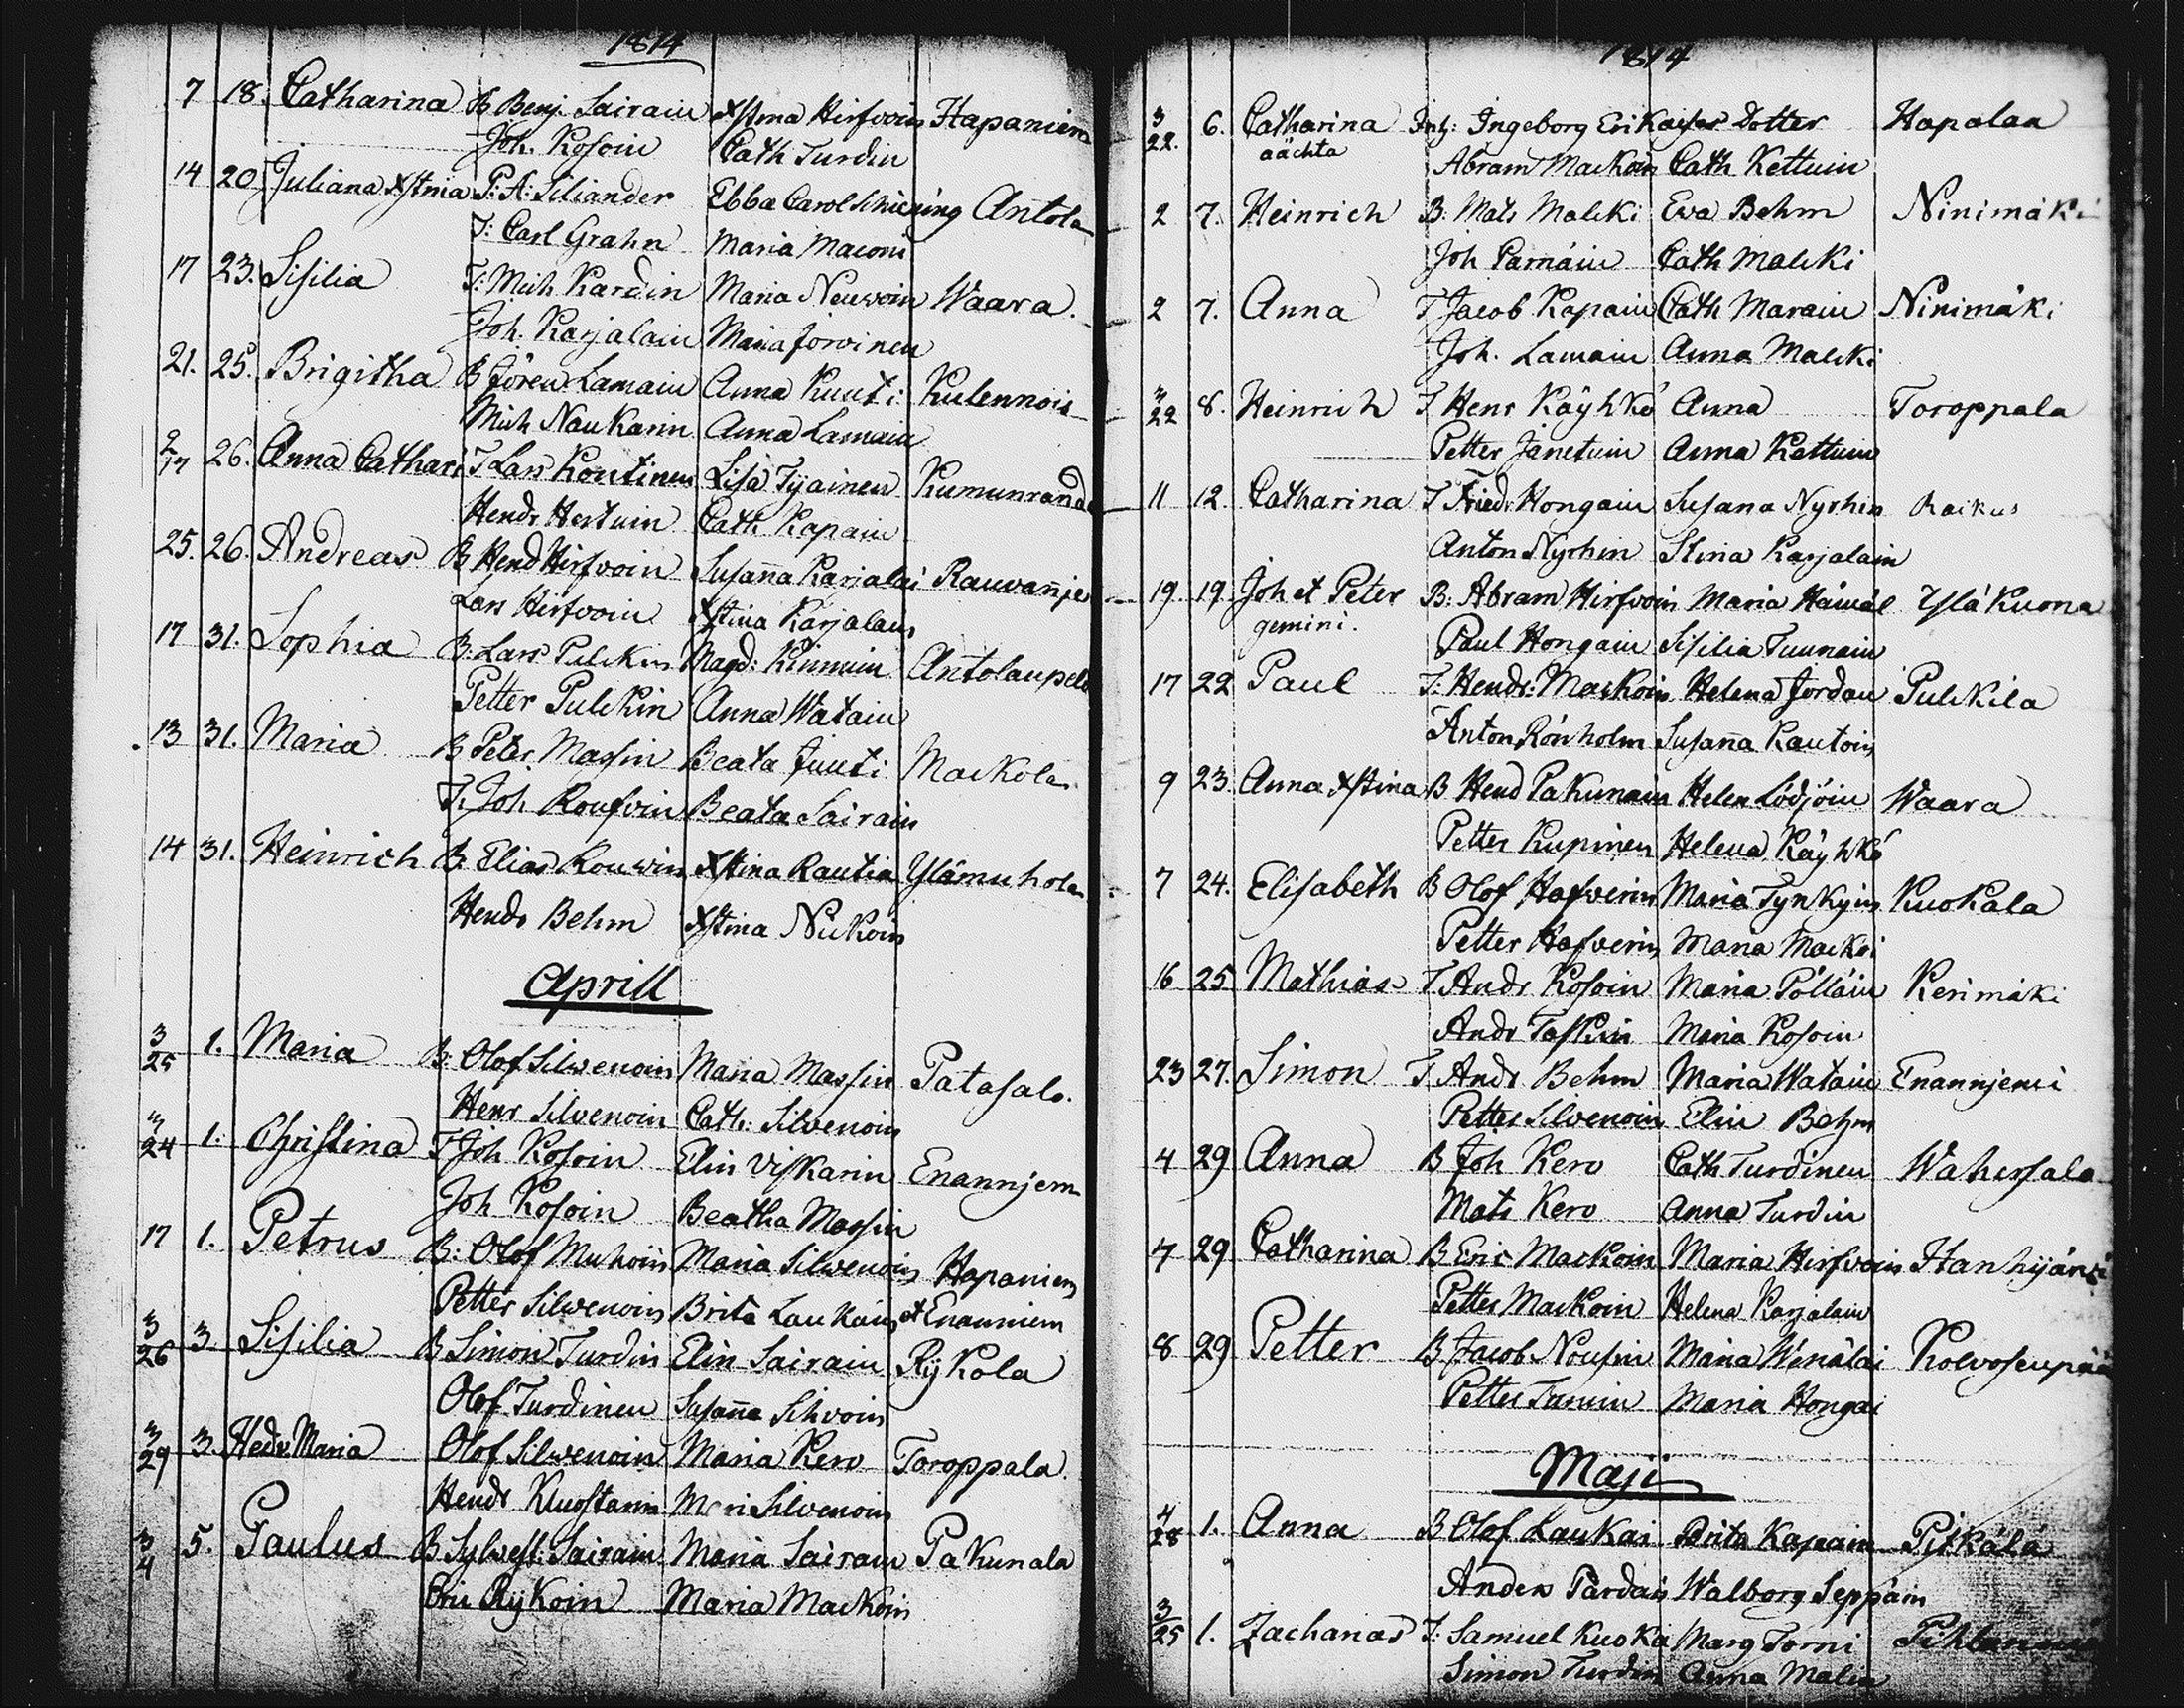 1814
7 18. Catharina B Benj. Sairain Xstina Hirfvoin Hapaniem
Joh. Kosoin Cath Turdin
14 20 Juliana Xstina P: A: Siliander Ebba Carol Schiering Antola
T: Carl Grahn Maria Maconi
17 23. Sisilia T: Mich Kardin Maria Neuvoin Waara.
Joh. Karjalain Maria Jorvinen
21. 25. Brigitha B Jören Lamain Anna Kuuti Kulennois
Mich Naukarin Anna Lamain
2/17 26. Anna Cathari T Lars Kontinen Lisa Tyjainen Kumunrand
Hendr Hertuin Cath Kapain
25. 26. Andreas B Hend Hirfvoin Susaña Karjalai Rauvañje
Lars Hirfvoin Xstina Karjalain
17 31. Sophia B: Lars Pulckin Magd: Kinnuin Antolanpeld
Petter Pulckin Anna Watain
13 31. Maria B Peter Massin Beata Juuti Mackola
T. Joh. Roufvin Beata Sairain
14 31. Heinrich B. Elias Rouwin Xstina Rautia Ylämuhola
Hendr Behm Xstina Nukoin
Aprill
3/25 1. Maria B: Olof Silwenoin Maria Massin Patasalo.
Henr Silvenoin Cath: Silvenoin
3/24 1. Christina T Joh Kosoin Elin Viskarin Enannjem
Joh Kosoin Beatha Massin
17 1. Petrus B: Olof Muhoin Maria Silwenoin Hapaniem
Petter Silwenoin Brita Laukain et Enanniem
3/26 3. Sisilia B Simon Turdin Elin Sairain Rykola
Olof Turdinen Susaña Sihvoin
3/29 3. Hedv. Maria Olof Silwenoin Maria Kero Toroppala
Hendr Kluostarin Mari Silvenoin
3/4 5. Paulus B Sylvest: Sairain Maria Sairain Pakunala
Eric Rykoin Maria Mackoin
1814
3/22. 6. Catharina Inh: Ingeborg Erikaisar Dotter Hapalaa
aächta Abram Mackoin Cath Kettuin
2 7. Heinrich B. Mats Malcki Eva Behm Ninimäki
Joh Parnäin Cath Malcki
2 7. Anna T Jacob Kapain Cath Marain Ninimäki
Joh. Lamain Anna Malcki
3/22 8. Heinrich T Henr Käyhkö Anna Toroppala
Petter Janetuin Anna Kettuin
11 12. Catharina T Friedr Hongain Susana Nyrhin Raikus
Anton Nyrhin Stina Karjalain
19 19 Joh et Peter B: Abram Hirfvoin Maria Hämäl Yläkuona
gemini. Paul Hongain Sisilia Tuunain
17 22 Paul T: Hendr: Mackoin Helena Jordan Pulckila
Anton Rönholm Susaña Kautoin
9 23. Anna Xstina B Hend Pakunain Helen Lödjöin Waara
Petter Kupinen Helena Käyhkö
7 24. Elisabeth B Olof Hafverin Maria Tynkyin Kuokala
Petter Hafverin Maria Mackoi
16 25 Mathias T Andr Kosoin Maria Pölläin Kerimäki
Andr Taskin Maria Kosoin
23 27. Simon T Andr Behm Maria Watain Enannjemi
Petter Silvenoin Elin Behm
4 29 Anna B Joh Kero Cath Turdinen Wahersalo
Mats Kero Anna Turdin
7 29 Catharina B Eric Mackoin Maria Hirfvoin Hanhijärvi
Petter Mackoin Helena Karjalain
8 29 Petter B Jacob Nousin Maria Wenäläi Kolvosenpää
Petter Tanuin Maria Hongai
Maji
4/28 1. Anna B Olof Laukai Brita Kapain Pitkälä
Anders Pardain Walborg Seppäin
3/25 1. Zacharias T: Samuel Kuoka Marg Torni
Simon Turdin Anna